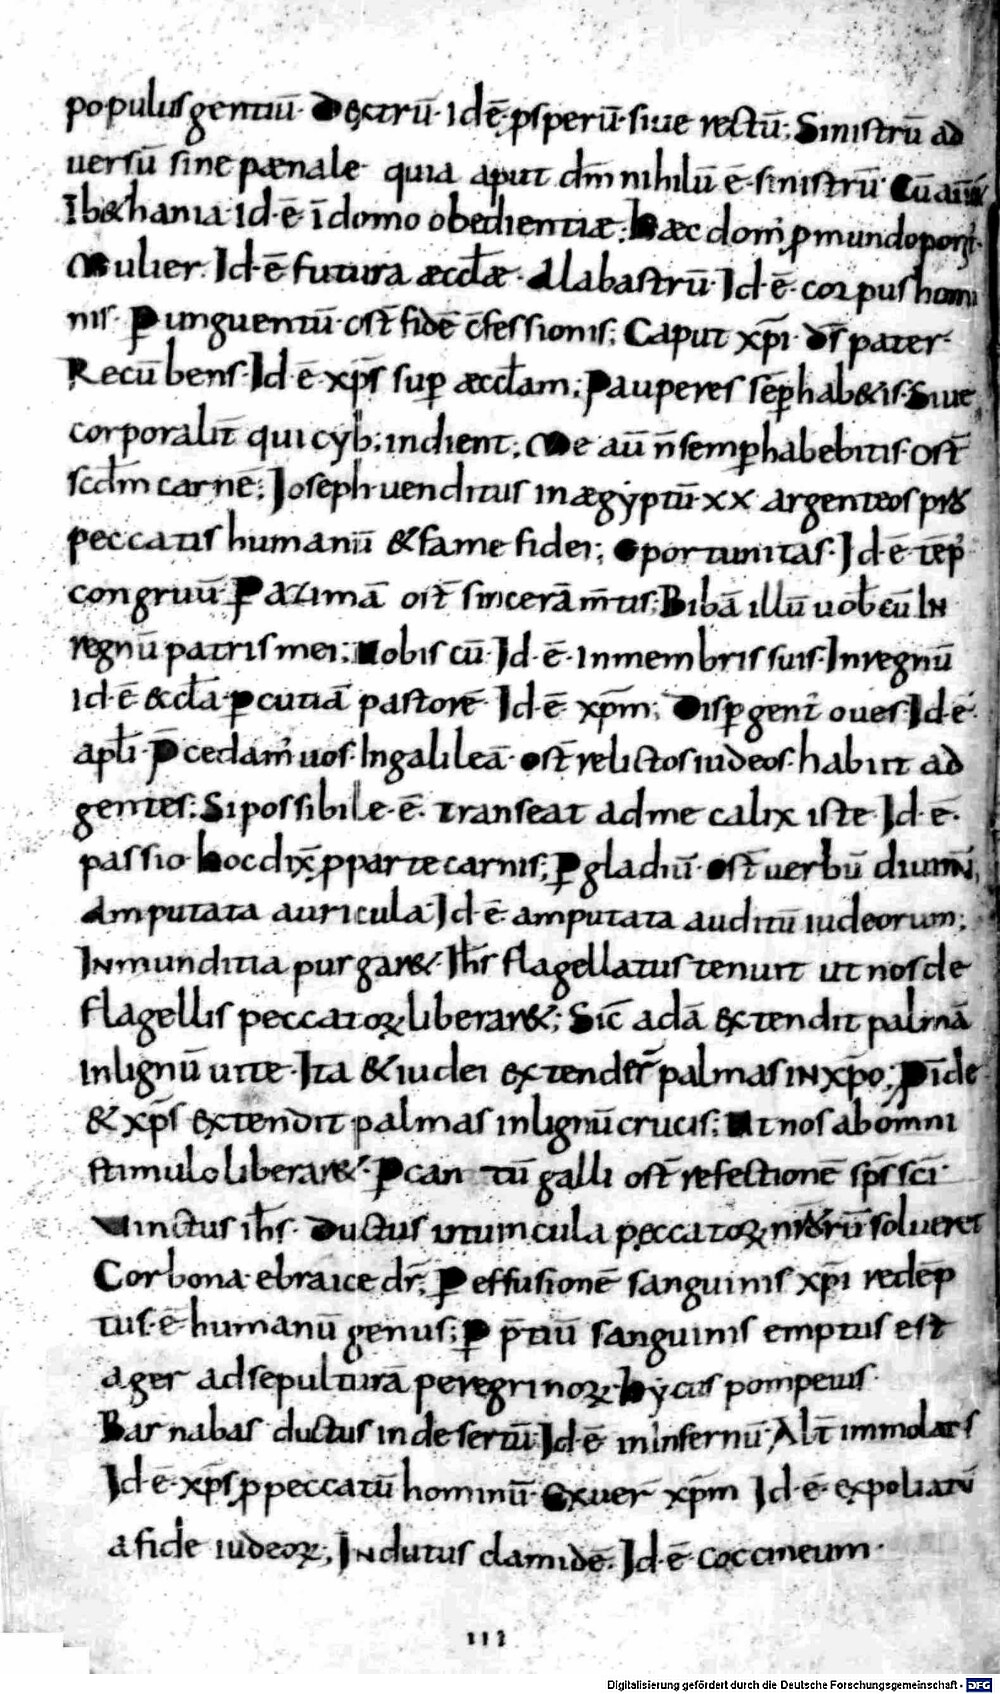 populus gentiū· Dextrū· id ē· psperū· siue rectū; Sinistrū ad
uersū siue pænale· quia aput dm̄ nihilū ē· sinistrū· Cū
Ī b&hania· id· ē· ī domo obedientiæ; Hæc dom' p mundo
Mulier· Id· ē futura æccl̄æ· Alabastrū· Id· ē· corpus homi
nis· P unguentū· ost̄ fidē c̄fessionis; Caput xp̄i· ds̄ pater·
Recūbens· Id· ē· xp̄s sup æccl̄am; Pauperes sēp hab&is· Siue
corporalit̄ qui cyb; indient; Me aū n̄ semp habebitis· Ost̄
scdm̄ carnē; Ioseph uenditus in ægyptū· xx argenteos
peccatis humanū & fame fidei; Oportunitas· Id· ē· tēp'
congruū· P azimā ost̄ sincerā m̄tis; Bibā illū uob̄cū IN
regnū patris mei; Nobis cū· Id· ē· in membris suis· In regnū
id· ē &cl̄a· pcutiā pastorē· Id· ē xp̄m; Dispgent' oues· Id· ē·
apl̄i· P̄cedam' uos· In galileā· ost̄ relictos iudeos· habiit ad
gentes; Si possibile· ē· transeat ad me calix iste· Id· ē·
passio· hoc dix̄ p parte carnis; P gladiū· ost̄ uerbū diuinū,
Amputata auricula· Id· ē· amputata auditū iudeorum;
INmunditia purgar&· Ih̄s flagellatus tenuit ut nos de
flagellis peccatoꝝ liberar&; Sic̄ adā extendit palmā
in lignū uite· Ita & iudei extender̄ palmas IN xp̄o; P̄īde
& xp̄s extendit palmas in lignū crucis; Ut nos ab omni
stimulo liberar&· P cantū galli ost̄ refectionē sps̄ sc̄i·
Uinctus ih̄s· Ductus uincula peccatoꝝ nr̄orū solueret
Corbona· ebraice dr̄; P effusionē sanguinis xp̄i redēp
tus· ē· humanū genus; P p̄tiū sanguinis emptus est
ager ad sepulturā peregrinoꝝ· hycus pompeius·
Barnabas ductus in desertū· Id· ē in infernū· Alt̄ immolat
Id· ē· xp̄s p peccatū hominū· Exuer̄ xp̄m Id· ē· expoliatū
a fide iudeoꝝ; INdutus clamidē· Id· ē· coccineum·
113
Digitalisierung gefördert durch die Deutsche Forschungsgemeinschaft - DFG